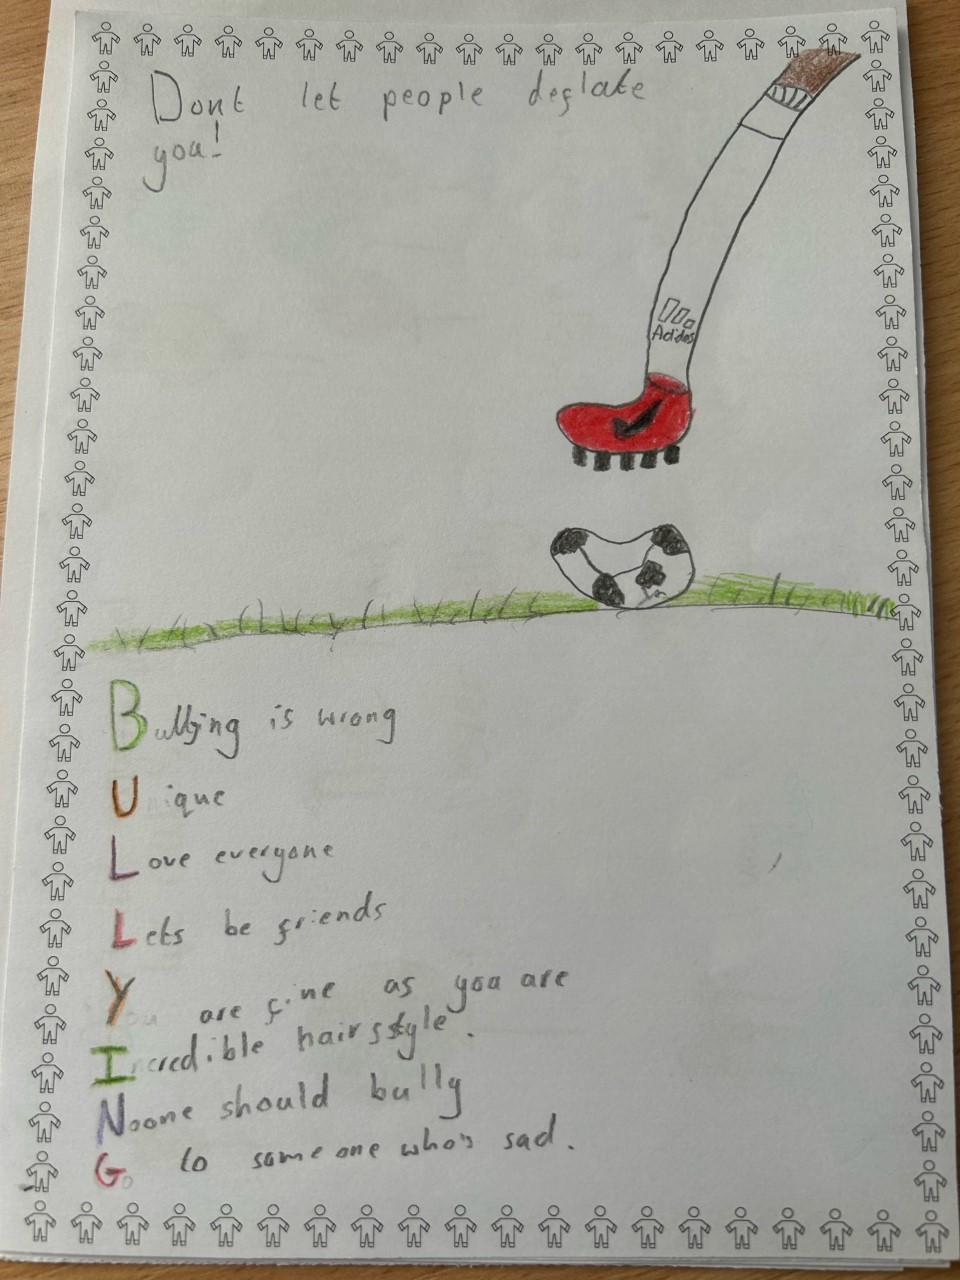 Dont let people deflate
you!
Adidas
Bullying is wrong
Unique
Love everyone
Lets be friends
You are fine as you are
Incredible hairsstyle.
Noone should bully
Go to someone who's sad.